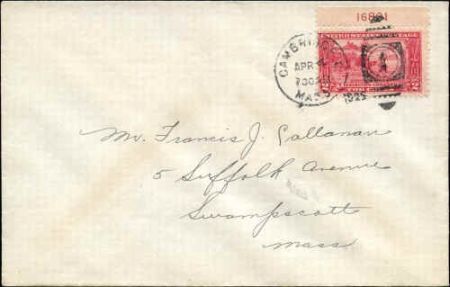 16801
UNITED STATES POSTAGE
CAMBRIDGE
APR
MASS
1925
2
Mr. Francis J. Callanan
5 Suffolk Avenue
Swampscott
Mass